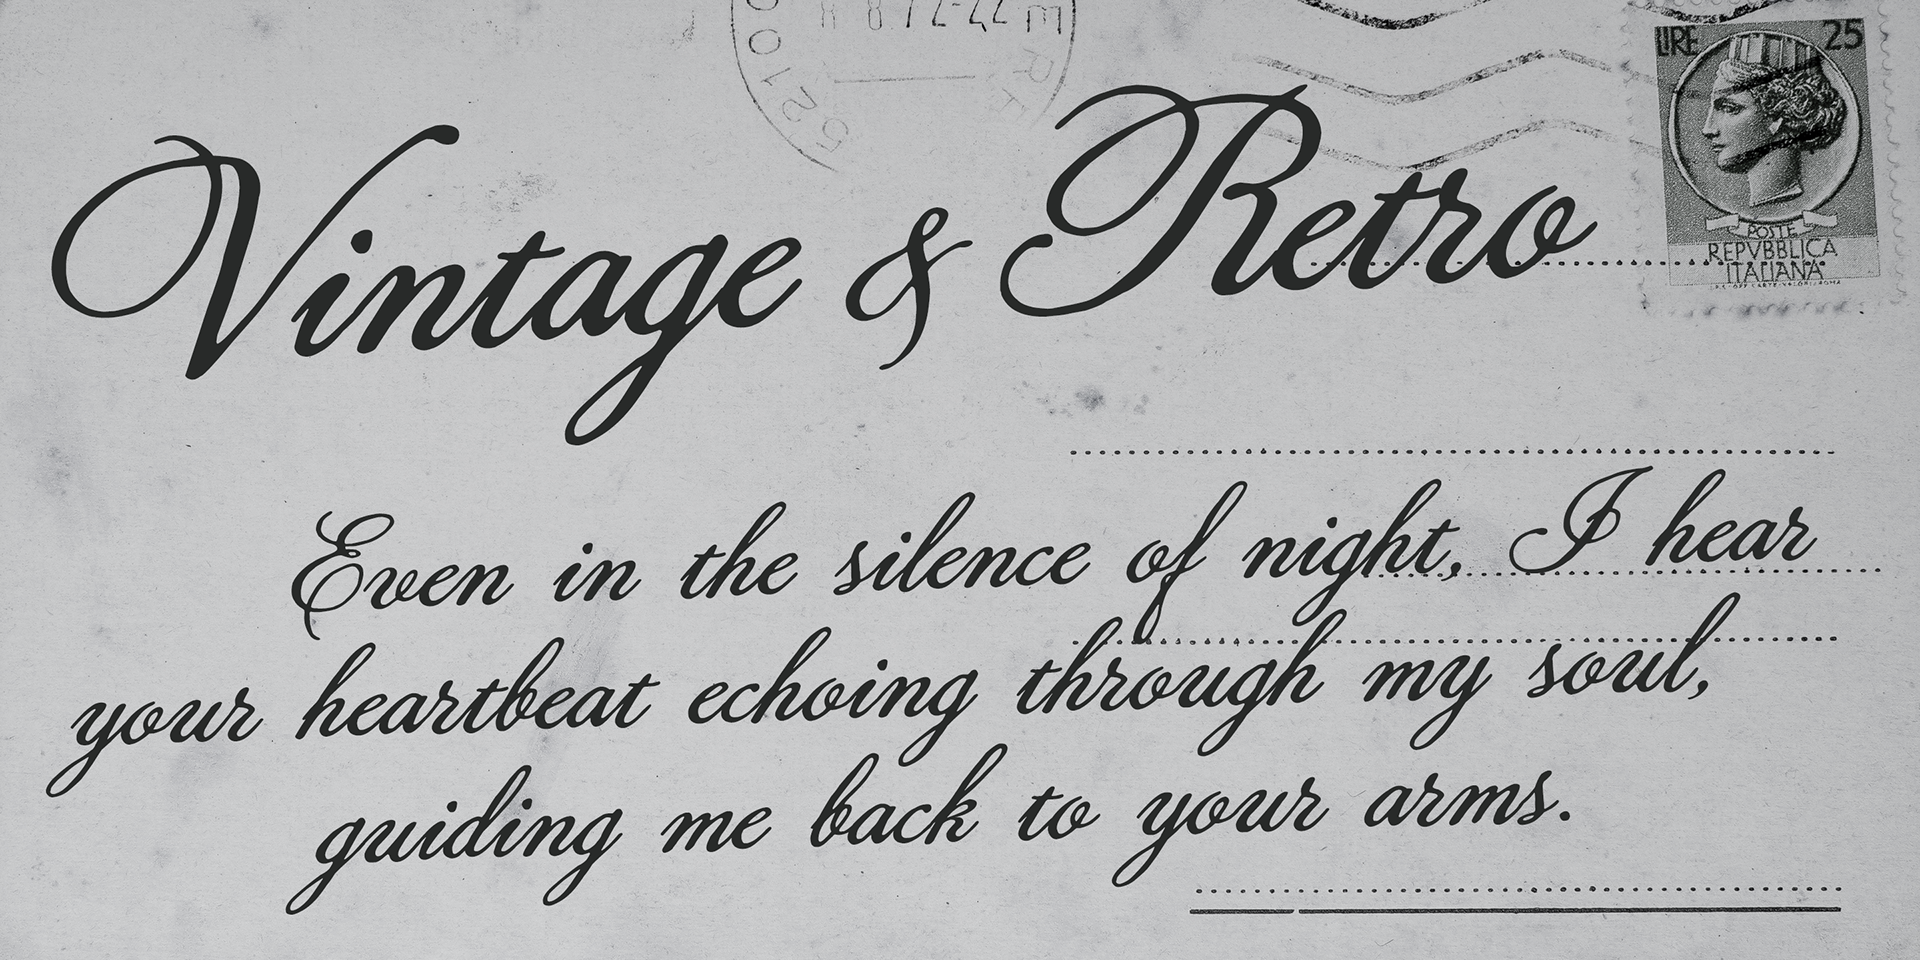 LIRE 25
Vintage & Retro
POSTE
REPVBBLICA
ITALIANA
Even in the silence of night, I hear
your heartbeat echoing through my soul,
guiding me back to your arms.